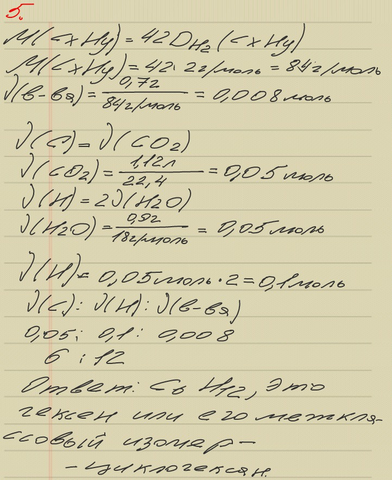 5.
M(CxHy) = 42D H2 (CxHy)
M(CxHy) = 42·2г/моль = 84г/моль
ν(в-вя) = 0,7г / 84г/моль = 0,008моль
ν(C) = ν(CO2)
ν(CO2) = 1,12л / 22,4 = 0,05 моль
ν(H) = 2ν(H2O)
ν(H2O) = 0,9г / 18г/моль = 0,05моль
ν(H) = 0,05моль·2=0,1моль
ν(C) : ν(H) : ν(в-вя)
0,05 : 0,1 : 0,008
6 : 12
Ответ: C6H12, это
гексен или его межкла-
ссовый изомер -
- циклогексан.